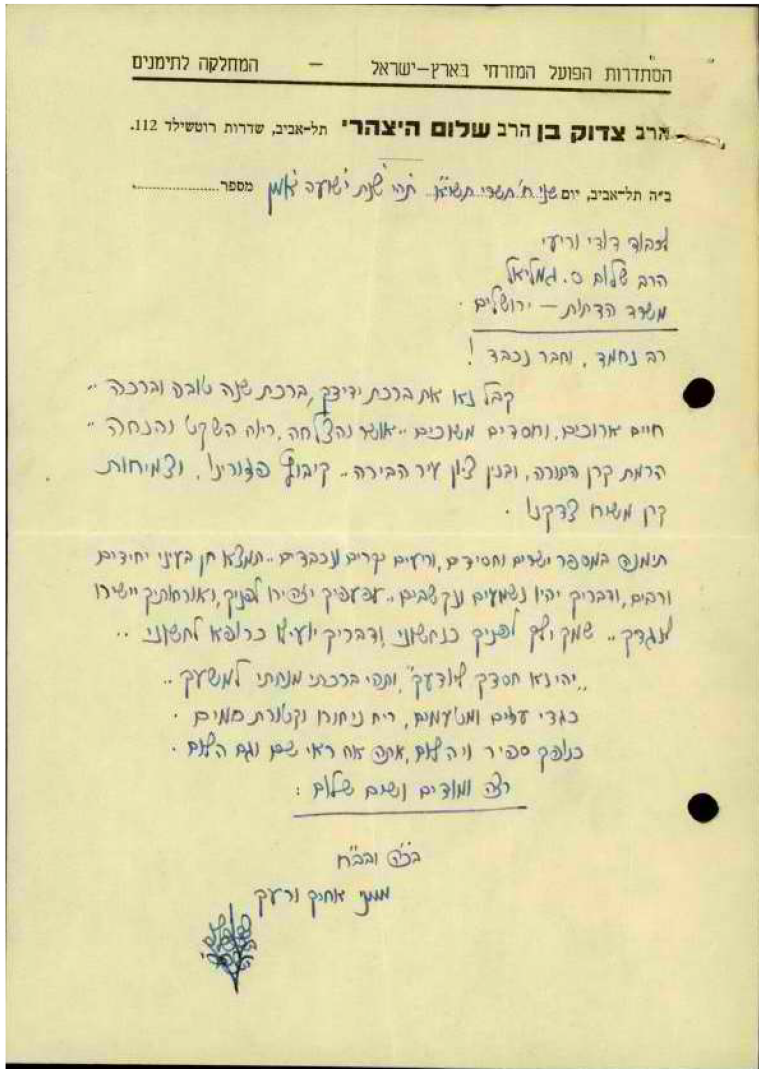 הסתדרות הפועל המזרחי בארץ-ישראל – המחלקה לתימנים
הרב צדוק בן הרב שלום היצהרי תל-אביב, שדרות רוטשילד 112.
ב״ה תל-אביב, יום שני ח' תשרי תשי״א תהי שנת ישועה אמן מספר
לכבוד דודי וריעי
הרב שלום ס. גמליאל
משרד הדתות – ירושלים.
רב נחמד, וחבר נכבד!
קבל נא את ברכת ידידך, ברכת שנה טובה וברכה..
חיים ארוכים, וחסדים משוכים.. אושר והצלחה, ריוח השקט והנחה..
הרמת קרן התורה, ובנין ציון עיר הבירה.. קיבוץ פזורינו, וצמיחות
קרן משיח צדקנו.
תימנה במספר ישרים וחסידים, וריעים יקרים ונכבדים.. תמצא חן בעיני יחידים
ורבים, ודבריך יהיו נשמעים ונקשבים.. עפעפיך יזהירו לפניך, ואורחותיך יישירו
לנגדך.. שמך ילך לפניך כנחשוני, ודבריך יועילו כרופא לחשוני..
,,יהי נא חסדך ליודעך", ותהי ברכתי מנחתי למשעך..
כגדי עזים ומטעמים, ריח ניחוח וקטורת סמים.
כנופך ספיר ויהלום, אתה אח ראי שם וגם הלום.
רצה ומודים ושים שלום:
בכ״ה ובב״ח
ממני אחיך ורעך